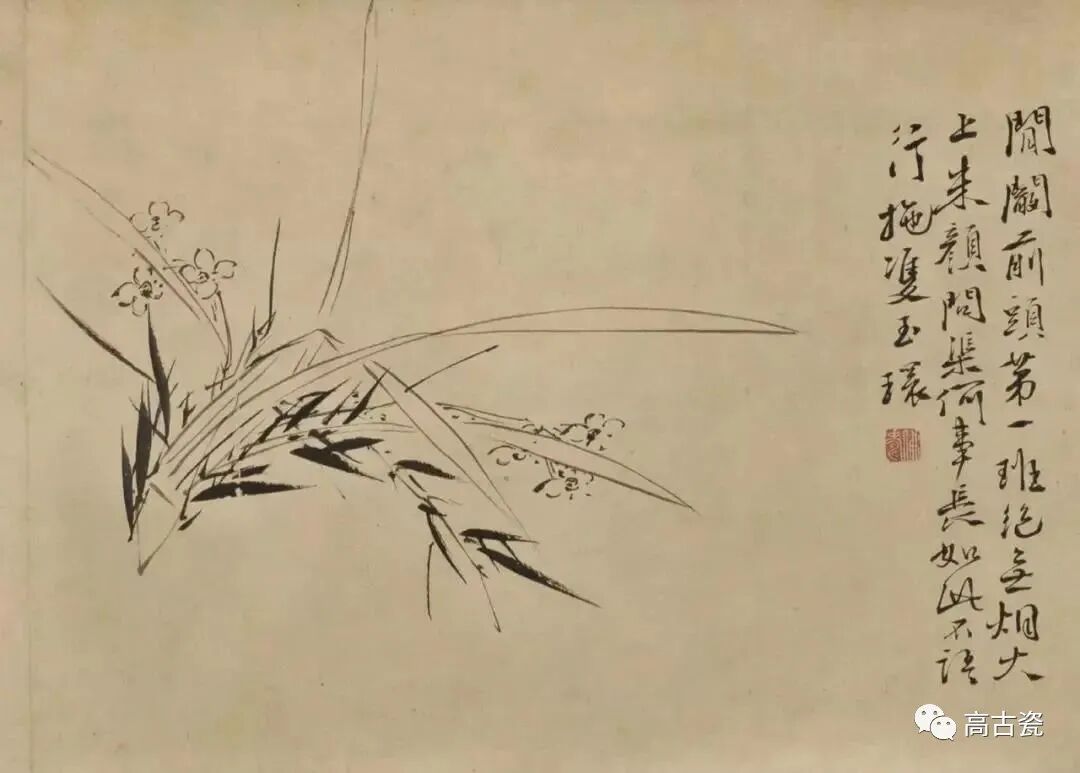 閶闔前頭第一班絕無烟火
上朱顏問渠何事長如此不語
行拖雙玉環
高古瓷